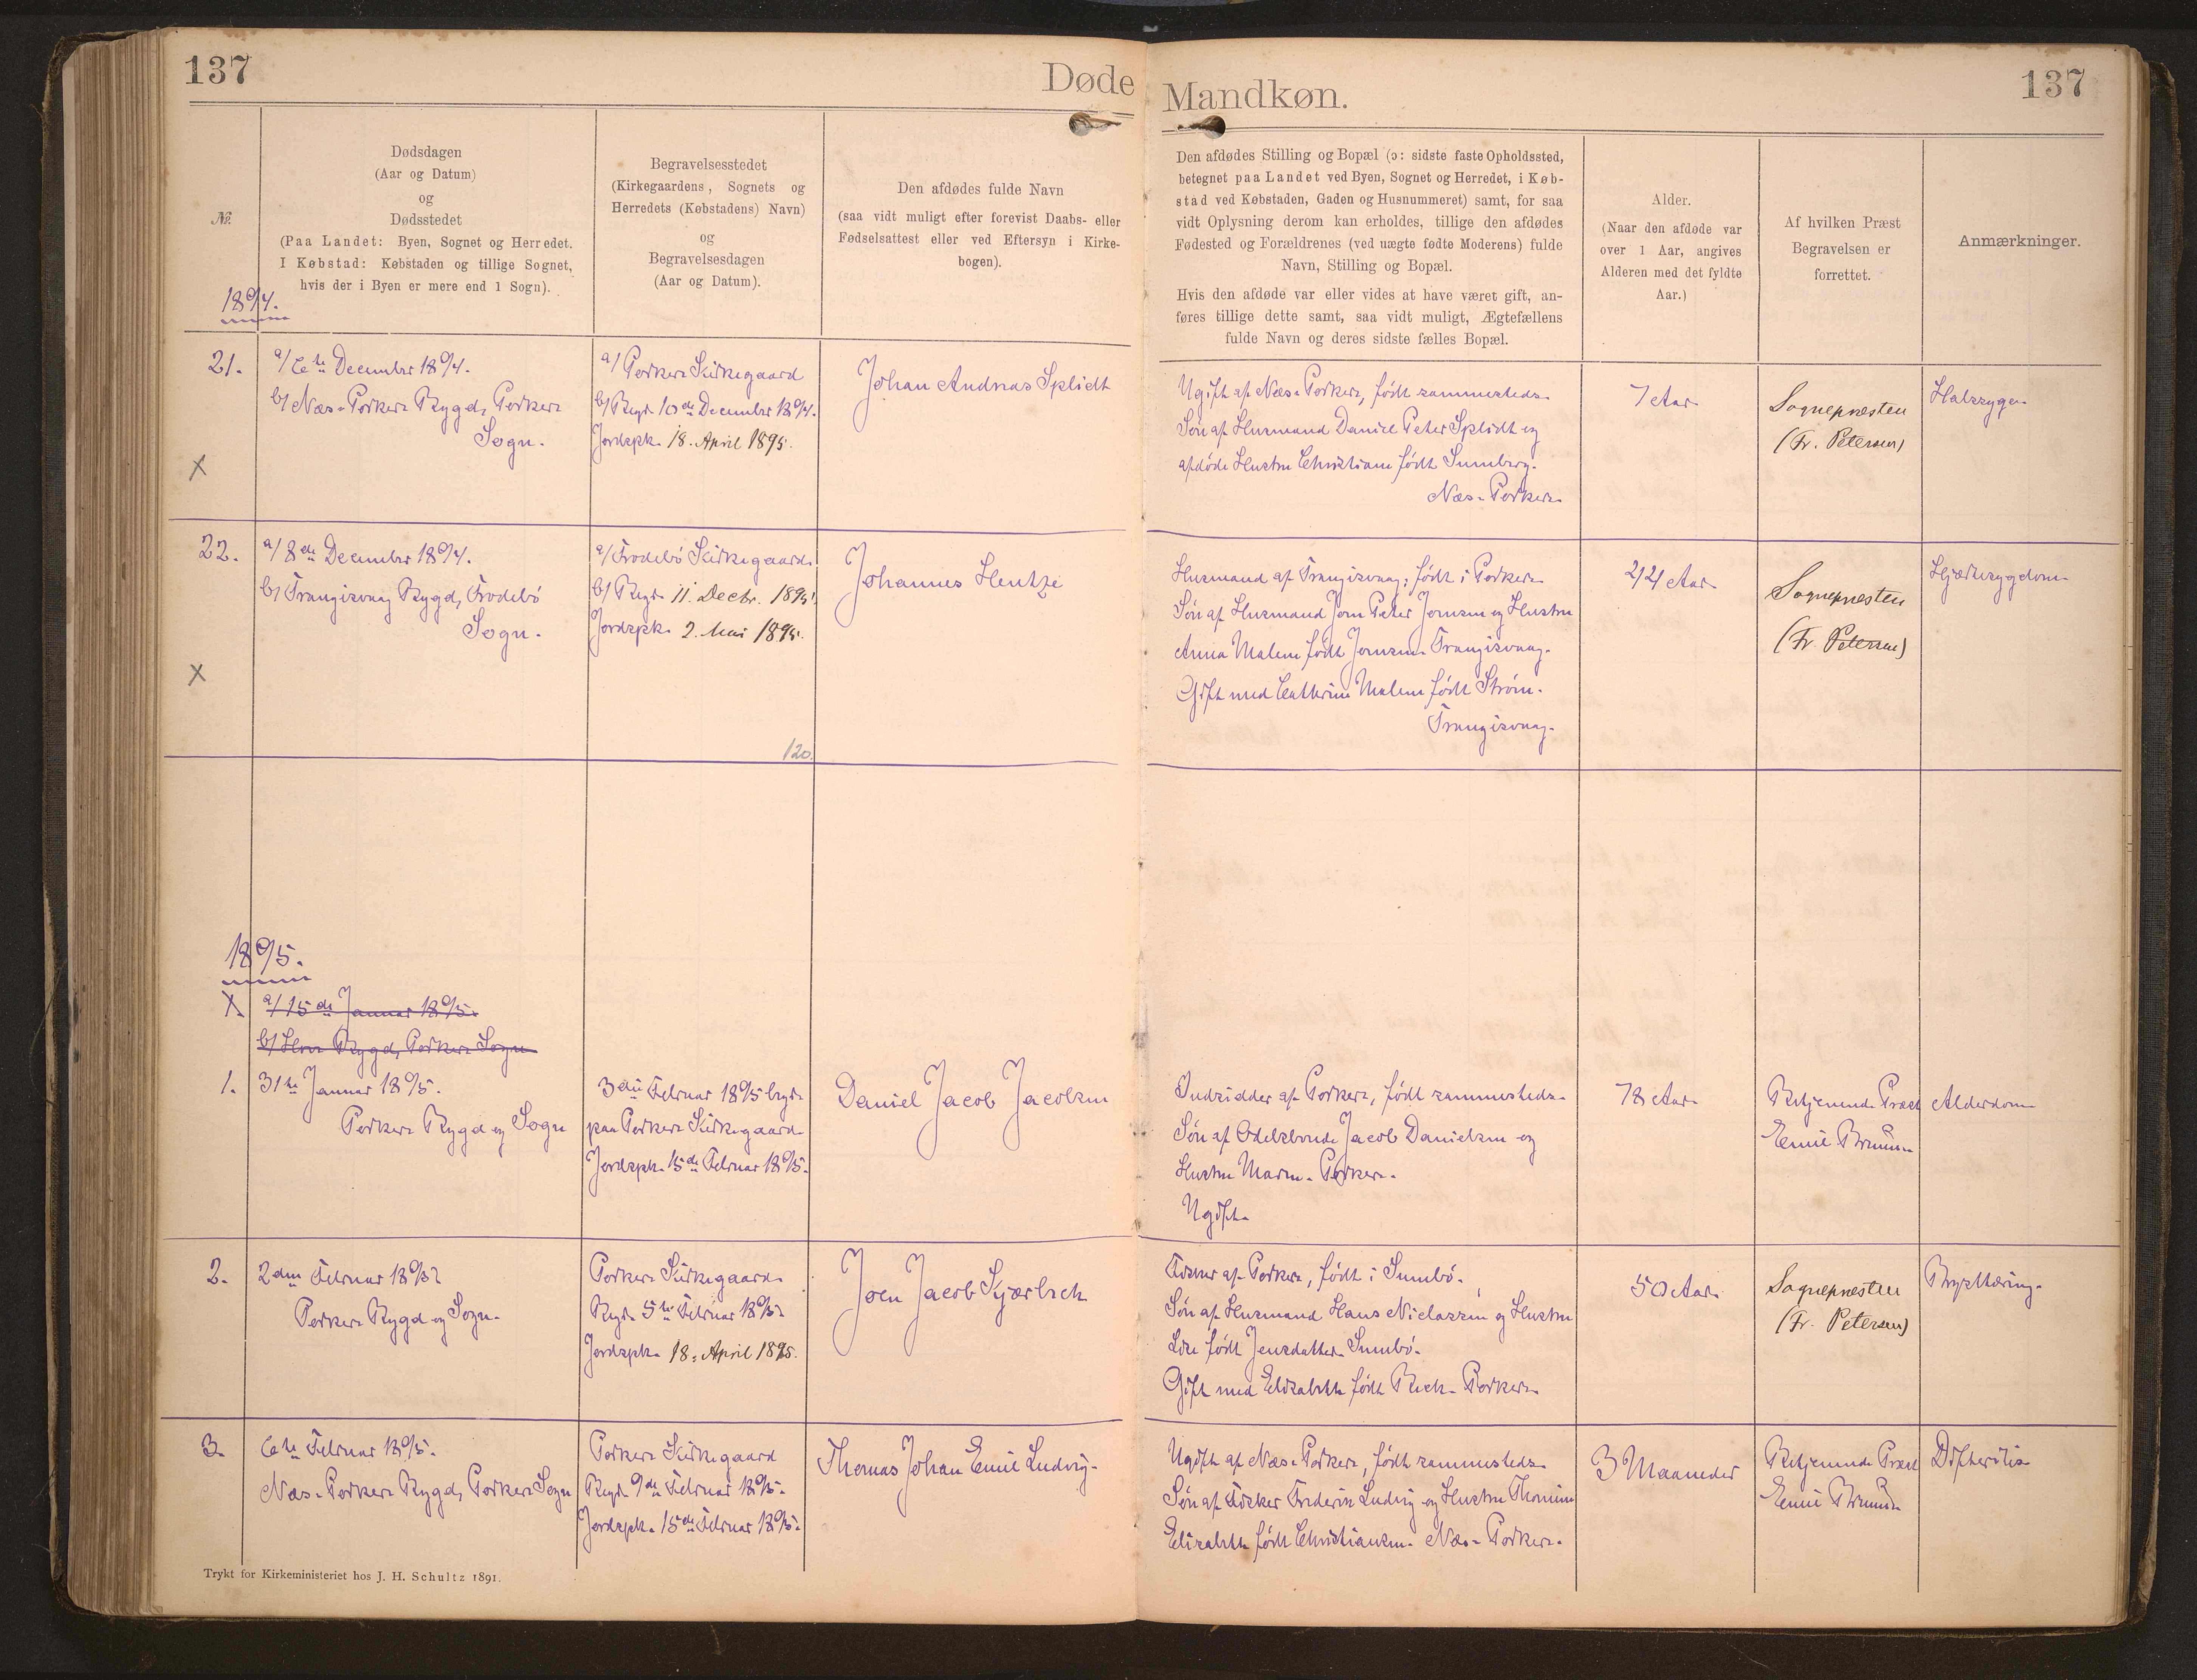 137
Døde
Mandkøn.
137
№
Dødsdagen
(Aar og Datum)
og
Dødsstedet
(Paa Landet: Byen, Sognet og Herredet.
I Købstad: Købstaden og tillige Sognet,
hvis der i Byen er mere end 1 Sogn).
Begravelsesstedet
(Kirkegaardens, Sognets og
Herredets (Købstadens) Navn)
og
Begravelsesdagen
(Aar og Datum).
Den afdødes fulde Navn
(saa vidt muligt efter forevist Daabs- eller
Fødselsattest eller ved Eftersyn i Kirke-
bogen).
Den afdødes Stilling og Bopæl (ɔ: sidste faste Opholdssted,
betegnet paa Landet ved Byen, Sognet og Herredet, i Køb-
stad ved Købstaden, Gaden og Husnummeret) samt, for saa
vidt Oplysning derom kan erholdes, tillige den afdødes
Fødested og Forældrenes (ved uægte fødte Moderens) fulde
Navn, Stilling og Bopæl.
Hvis den afdøde var eller vides at have været gift, an-
føres tillige dette samt, saa vidt muligt, Ægtefællens
fulde Navn og deres sidste fælles Bopæl.
Alder.
(Naar den afdøde var
over 1 Aar, angives
Alderen med det fyldte
Aar.)
Af hvilken Præst
Begravelsen er
forrettet.
Anmærkninger.
1894.
21.
a/ 6te December 1894.
b/ Næs - Porkere Bygd, Porkere
Sogn.
X
a/ Porkere Kirkegaard
b/ Begr. 10de December 1894.
Jordspk. 18. April 1895.
Johan Andreas Splidt
Ugift af Næs - Porkere, født sammesteds.
Søn af Husmand Daniel Peter Splidt og
afdøde Hustru Christiane født Sumberg.
Næs - Porkere.
7 Aar
Sognepræsten
(Fr. Petersen)
Halssyge.
22.
a/ 8de December 1894.
b/ Trangisvaag Bygd, Frodebø
Sogn.
X
a/ Frodebø Kirkegaard.
b/ Begr. 11. Decbr. 1895.
Jordspk. 2. Mai 1895.
120.
Johannes Hentze
Husmand af Trangisvaag; født i Porkere
Søn af Husmand Joen Peter Joensen og Hustru
Anna Malene født Joensen. Trangisvaag.
Gift med Cathrine Malene født Strøm.
Trangisvaag.
Aar
Sognepræsten
(Fr. Petersen)
Hjertesygdom.
1895.
X
a/ 15de Januar 1895.
b/ Hove Bygd, Porkere Sogn
1.
31te Januar 1895.
Porkere Bygd og Sogn
3die Februar 1895 begr.
paa Porkere Kirkegaard.
Jordspk. 15de Februar 1895.
Daniel Jacob Jacobsen
Indsidder af Porkere, født sammesteds.
Søn af Odelsbonde Jacob Danielsen og
Hustru Maren. Porkere.
Ugift.
78 Aar
Betjenende Præst
Emil Bruun.
Alderdom
2.
2den Februar 1895
Porkere Bygd og Sogn.
Porkere Kirkegaard.
Begr. 5te Februar 1895.
Jordspk. 18. April 1895.
Joen Jacob Kjærbech
Fisker af Porkere, født i Sumbø.
Søn af Husmand Hans Niclassen og Hustru
Lise født Jensdatter. Sumbø.
Gift med Elisabeth født Bech. Porkere.
50 Aar.
Sognepræsten
(Fr. Petersen)
Brysttæring.
3.
6te Februar 1895.
Næs - Porkere Bygd, Porkere Sogn
Porkere Kirkegaard
Begr. 9de Februar 1895.
Jordspk. 15de Februar 1895.
Thomas Johan Emil Ludvig.
Ugift af Næs - Porkere, født sammesteds
Søn af Fisker Frederik Ludvig og Hustru Thomine
Elisabeth født Christiansen. Næs - Porkere.
3 Maaneder
Betjenende Præst
Emil Bruun.
Difteritis
Trykt for Kirkeministeriet hos J. H. Schultz 1891.